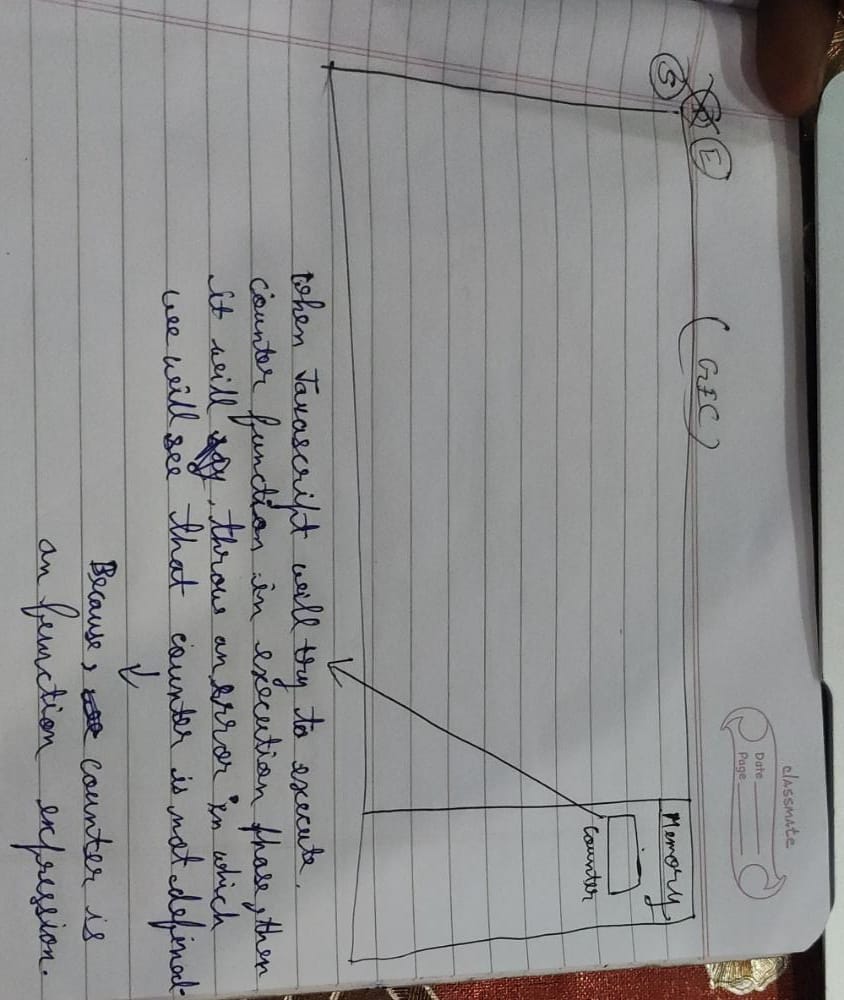 classmate
Date
Page
(GEC)
E
S
Memory
counter
When Javascript will try to execute
counter function in execution phase, then
it will throws an error in which
we will see that counter is not defined.
Because, counter is
an function expression.